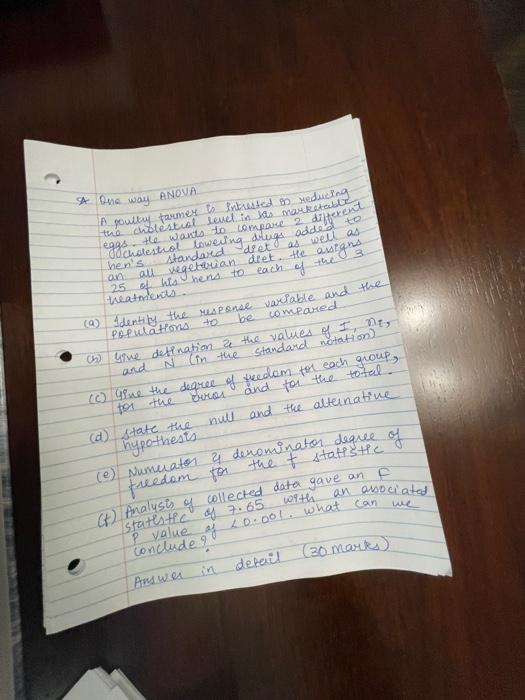 * One way ANOVA
A poultry farmer is intrested in reducing
the cholestrol level in his marketable
eggs. He wants to compare 2 different
cholestrol lowering drugs added to
hen's standard diet as well as
an all vegeterian diet. He assigns
25 of his hens to each of the 3
treatments.
(a) Identity the response variable and the
populations to be compared
(b) Give defination & the values of I, ni,
and N (in the standard notation)
(c) Give the degree of freedom for each group,
for the error and for the total.
(d) state the null and the alternative
hypothesis
(e) Numerator & denominator degree of
freedom for the f statistic
(f) Analysis of collected data gave an F
statistic of 7.65 with an associated
P value of <0.001. What can we
conclude?
Answer in detail (30 marks)